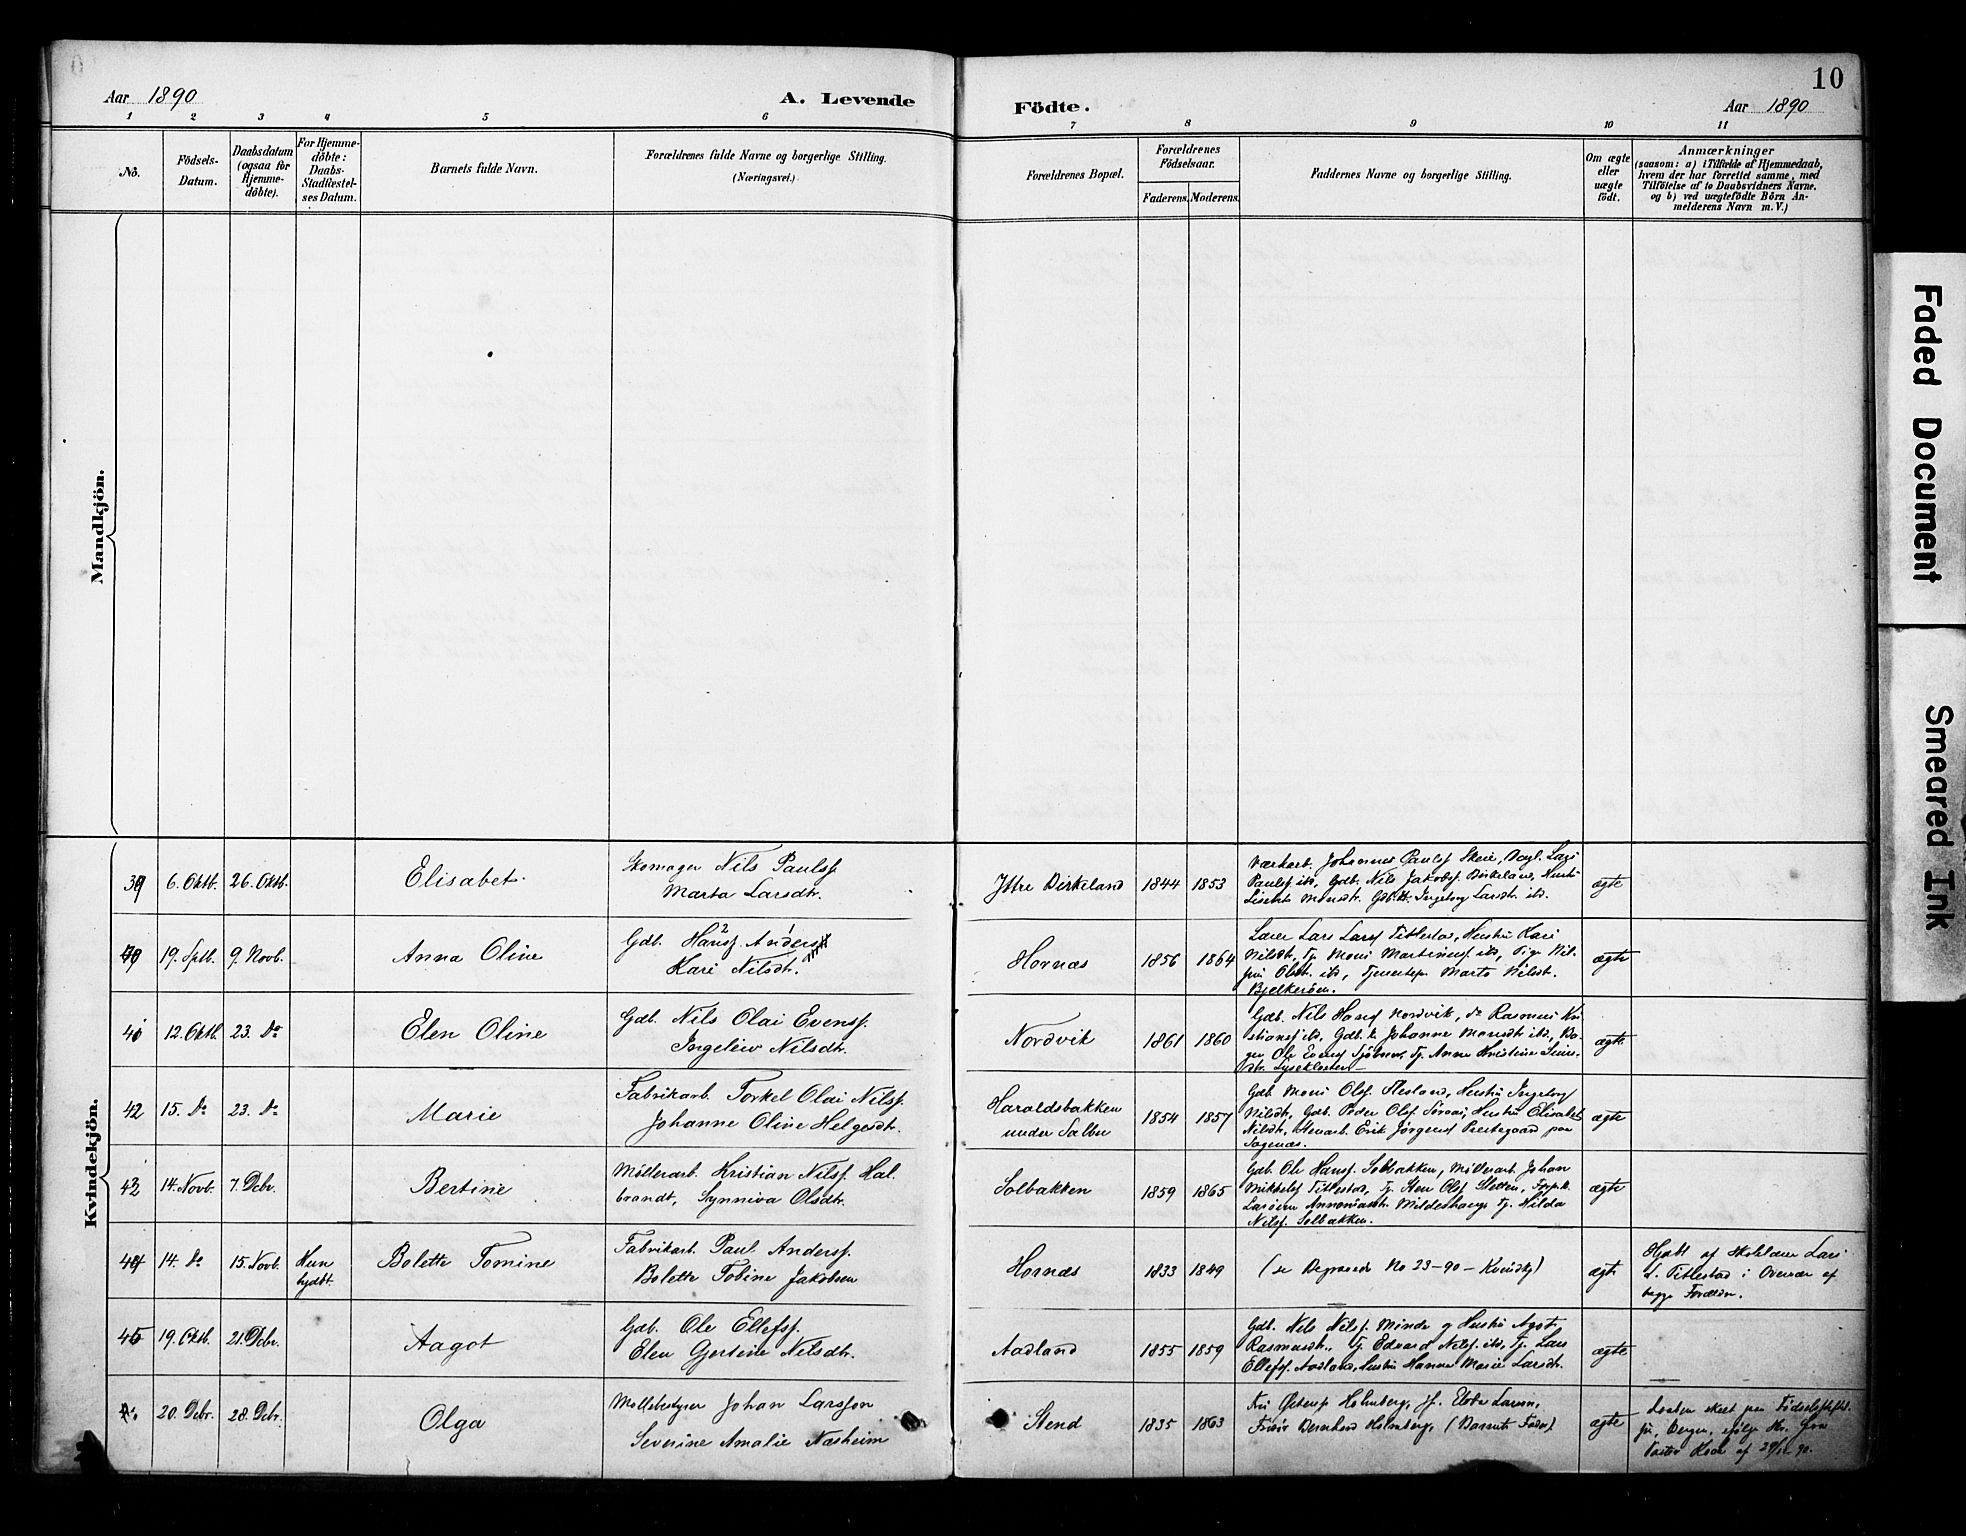 Aar 1890
A. Levende
Födte.
10
Aar 1890
1 2 3 4 5 6 7 8 9 10 11
No.
Födsels-
Datum.
Daabsdatum
(ogsaa for
Hjemme-
döbte).
For Hjemme-
döbte:
Daabs-
Stadfæstel-
ses Datum.
Barnets fulde Navn.
Forældrenes fulde Navne og borgerlige Stilling.
(Næringsvei.)
Forældrenes Bopæl.
Forældrenes
Födselsaar.
Faderens. Moderens.
Faddernes Navne og borgerlige Stilling.
Om ægte
eller
uægte
födt.
Anmærkninger
(saasom: a) i Tilfælde af Hjemmedaab,
hvem der har forrettet samme, med
Tilföielse af to Daabsvidners Navne,
og b) ved uægtefödte Börn An-
melderens Navn m. V.)
Mandkjön.
Kvindekjön.
39 6. Oktb. 26. Oktb. Elisabet.
Skomager Nils Paulsf.
Marta Larsdtr.
Ytre Birkeland 1844 1853
Værkarb. Johannes Paulsf Skeie, Lars
Paulsf ibd, Gdb. Nils Jakobsf. Birkeland, Hustr.
Lisbets Monsdtr. Ingeborg Larsdtr. ibd.
ægte
19. Sptb. 9. Novb. Anna Oline
Gdb. Hansf. Anders
Kari Nilsdtr.
Hornæs 1856 1864
Lærer Lars Larsf Tittlestad, Hustru Kari
Nilsdtr, Tj. Mons Martinusf ibd, Pige
Olsdtr. ibd, Marta Nilsdt.
ægte
12. Oktb. 23. Do Elen Oline
Gdb. Nils Olai Evensf.
Ingeleiv Nilsdtr.
Nordvik 1861 1860
Gdb. Nils Hansf Nordvik, do Rasmus Kri
stiansf ibd, Gdb. k. Johanne Monsdtr ibd,
Ole Evensf Tj. Anna Kristine
Lyseklostr
ægte
42 15. Do 23. Do Marie
Fabrikarb. Torkel Olai Nilsf.
Johanne Oline Helgesdtr.
Haroldsbakken
under 1854 1857
Gdb. Mons Olsf. Flesland, Hustru Ingeborg
Nilsdtr, Gdb. Peder Olsf Hustru Elisabet
Nilsdtr, Erik Jørgensf Prestegaard paa
ægte
43 14. Novb. 7. Dcbr. Bertine
Möllerarb. Kristian Nilsf. Hal
brandt, Synniva Olsdtr.
Solbakken 1859 1865
Gdb. Ole Hansf. Solbakken, Möllerarb. Johan
Mikkelsf Tittlestad, Tj. Sten Olsf Sletten,
Hilda
Nilsf. Solbakken.
ægte
44 14. Do 15. Novb. Kun
hjdbt. Bolette Tomine
Fabrikarb. Paul Andersf.
Bolette Tobine Jakobsen
Hornæs 1833 1849
(se Begravede No 23-90 - Kvindkj)
ægte
Hjdbt af Skolelærer Lars
L. Tittlestad i Overvær af
begge Forældre.
45 19. Oktb. 21. Dcbr. Aagot
Gdb. Ole Ellefsf.
Elen Gjertine Nilsdtr.
Aadland 1855 1859
Gdb. Nils Nilsf. Minde og Hustru Agot
Rasmusdtr., Tj. Edvard Nilsf. ibd, Tj. Lars
Ellefsf. Aadland, Hustru Hanna Marie Larsdtr.
ægte
20. Dcbr. 28. Dcbr. Olga
Möllebestyrer Johan Larsson
Severine Amalie Næsheim
Stend 1835 1863
Holmberg, jf. Ebba Larsen,
Bernhard Holmberg, (Barnets Fader)
ægte
skeet paa
Bergen, ifölge
Pastor Koch af 29/12 90.
Faded Document
Smeared Ink